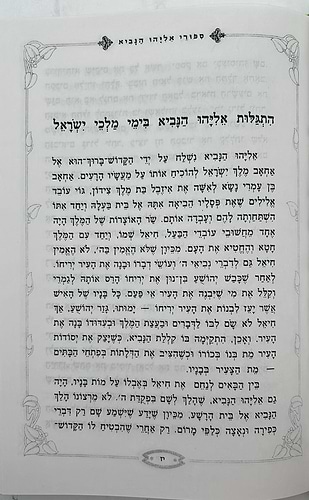 סִפּוּרֵי אֵלִיָּהוּ הַנָּבִיא
הִתְגַּלּוּת אֵלִיָּהוּ הַנָּבִיא בִּימֵי מַלְכֵי יִשְׂרָאֵל
אֵלִיָּהוּ הַנָּבִיא נִשְׁלַח עַל יְדֵי הַקָּדוֹשׁ־בָּרוּךְ־הוּא אֶל
אַחְאָב מֶלֶךְ יִשְׂרָאֵל לְהוֹכִיחַ אוֹתוֹ עַל מַעֲשָׂיו הָרָעִים. אַחְאָב
בֶּן עָמְרִי נָשָׂא לְאִשָּׁה אֶת אִיזֶבֶל בַּת מֶלֶךְ צִידוֹן, גּוֹי עוֹבֵד
אֱלִילִים שֶׁאֶת פְּסָלָיו הֵבִיאָה אִתָּהּ אֶל בֵּית בַּעְלָהּ וְיַחַד אִתּוֹ
הִשְׁתַּחַוְתָה לָהֶם וְעָבְדָה אוֹתָם. שַׂר הָאוֹצָרוֹת שֶׁל הַמֶּלֶךְ הָיָה
אֶחָד מֵחֲשׁוּבֵי עוֹבְדֵי הַבַּעַל, חִיאֵל שְׁמוֹ, וְיַחַד עִם הַמֶּלֶךְ
חָטָא וְהֶחֱטִיא אֶת הָעָם. מִכֵּיוָן שֶׁלֹּא הֶאֱמִין בַּה', לֹא הֶאֱמִין
חִיאֵל גַּם לְדִבְרֵי נְבִיאֵי ה' וְעוֹשֵׂי דְבָרוֹ וּבָנָה אֶת הָעִיר יְרִיחוֹ.
לְאַחַר שֶׁכָּבַשׁ יְהוֹשֻׁעַ בִּן־נוּן אֶת יְרִיחוֹ הָרַס אוֹתָהּ לְגַמְרֵי
וְקִלֵּל אֶת מִי שֶׁיִּבְנֶה אֶת הָעִיר אֵי פַעַם. כָּל בָּנָיו שֶׁל הָאִישׁ
אֲשֶׁר יָעֵז לִבְנוֹת אֶת הָעִיר יְרִיחוֹ — יָמוּתוּ, גָּזַר יְהוֹשֻׁעַ, אַךְ
חִיאֵל לֹא שָׂם לִבּוֹ לַדְּבָרִים וּבַעֲצַת הַמֶּלֶךְ וּבְעִדּוּדוֹ בָּנָה אֶת
הָעִיר. וְאָכֵן, הִתְקַיְּמָה בּוֹ קִלְלַת הַנָּבִיא, כְּשֶׁיָּצַק אֶת יְסוֹדוֹת
הָעִיר מֵת בְּנוֹ בְּכוֹרוֹ וּכְשֶׁהִצִּיב אֶת הַדְּלָתוֹת בְּפִתְחֵי הַבָּתִּים
— מֵת הַצָּעִיר בְּבָנָיו.
בֵּין הַבָּאִים לְנַחֵם אֶת חִיאֵל בְּאֶבְלוֹ עַל מוֹת בָּנָיו, הָיָה
גַּם אֵלִיָּהוּ הַנָּבִיא, שֶׁהָלַךְ לְשָׁם בִּפְקֻדַּת ה'. לֹא מֵרְצוֹנוֹ הָלַךְ
הַנָּבִיא אֶל בֵּית הָרָשָׁע, מִכֵּיוָן שֶׁיָּדַע שֶׁיִּשְׁמַע שָׁם רַק דִּבְרֵי
כְּפִירָה וּנְאָצָה כְּלַפֵּי מָרוֹם. רַק אַחֲרֵי שֶׁהִבְטִיחַ לוֹ הַקָּדוֹשׁ־
יז